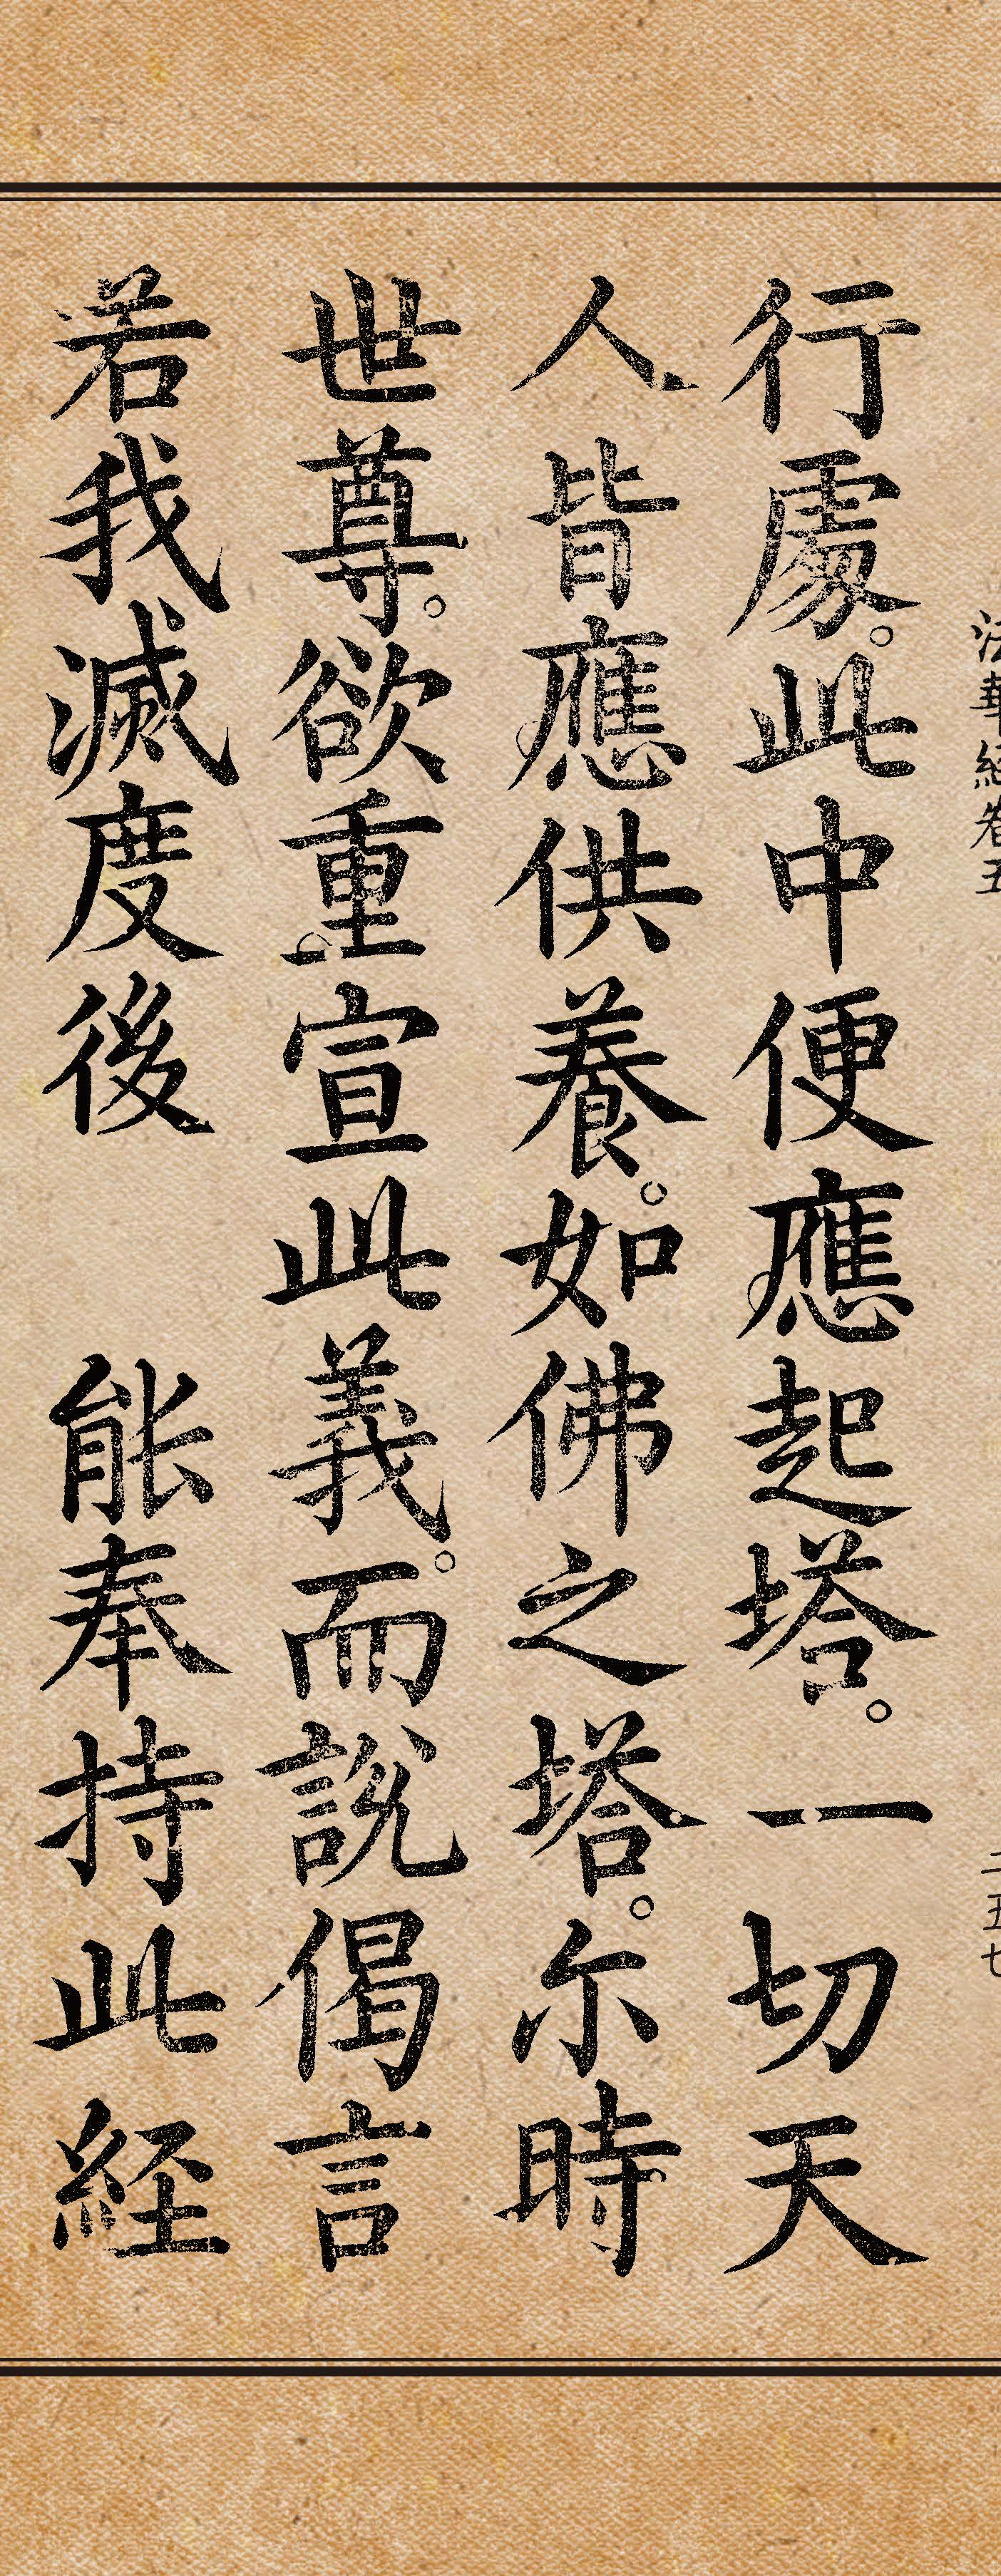 法華経巻五 二五七
行處。此中便應起塔。一切天
人皆應供養。如佛之塔。尓時
世尊。欲重宣此義。而說偈言
若我滅度後 能奉持此経